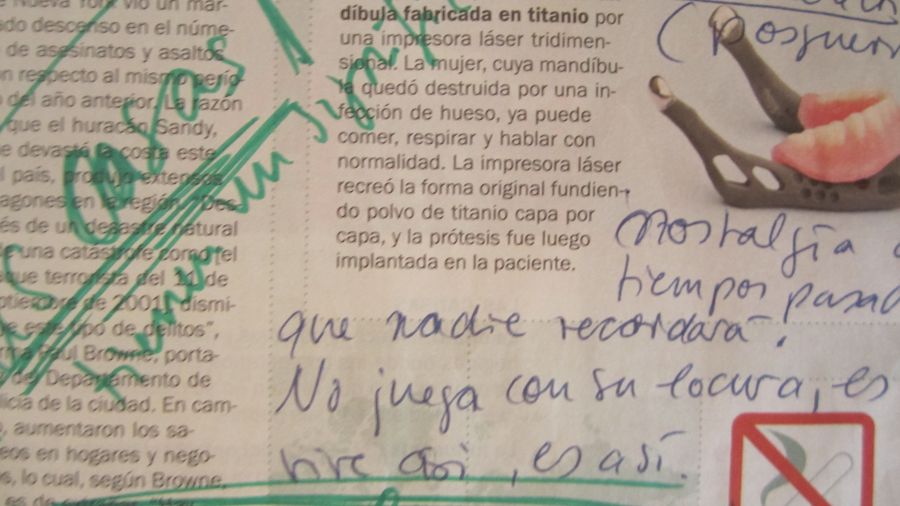 Nueva York vio un mar-
ado descenso en el núme-
de asesinatos y asaltos
n respecto al mismo perío-
del año anterior. La razón
que el huracán Sandy,
e devastó la costa este
l país, produjo extensos
agones en la región. "Des-
és de un desastre natural
e una catástrofe como [el
que terrorista del 11 de
ptiembre de 2001], dismi-
e este tipo de delitos",
rma Paul Browne, porta-
del Departamento de
licía de la ciudad. En cam-
, aumentaron los sa-
eos en hogares y nego-
s, lo cual, según Browne,
es de
díbula fabricada en titanio por
una impresora láser tridimen-
sional. La mujer, cuya mandíbu-
la quedó destruida por una in-
fección de hueso, ya puede
comer, respirar y hablar con
normalidad. La impresora láser
recreó la forma original fundien-
do polvo de titanio capa por
capa, y la prótesis fue luego
implantada en la paciente.
(posguerr
Nostalgia
tiempos pasad
que nadie recordará.
No juega con su locura, es
vive así, es así.